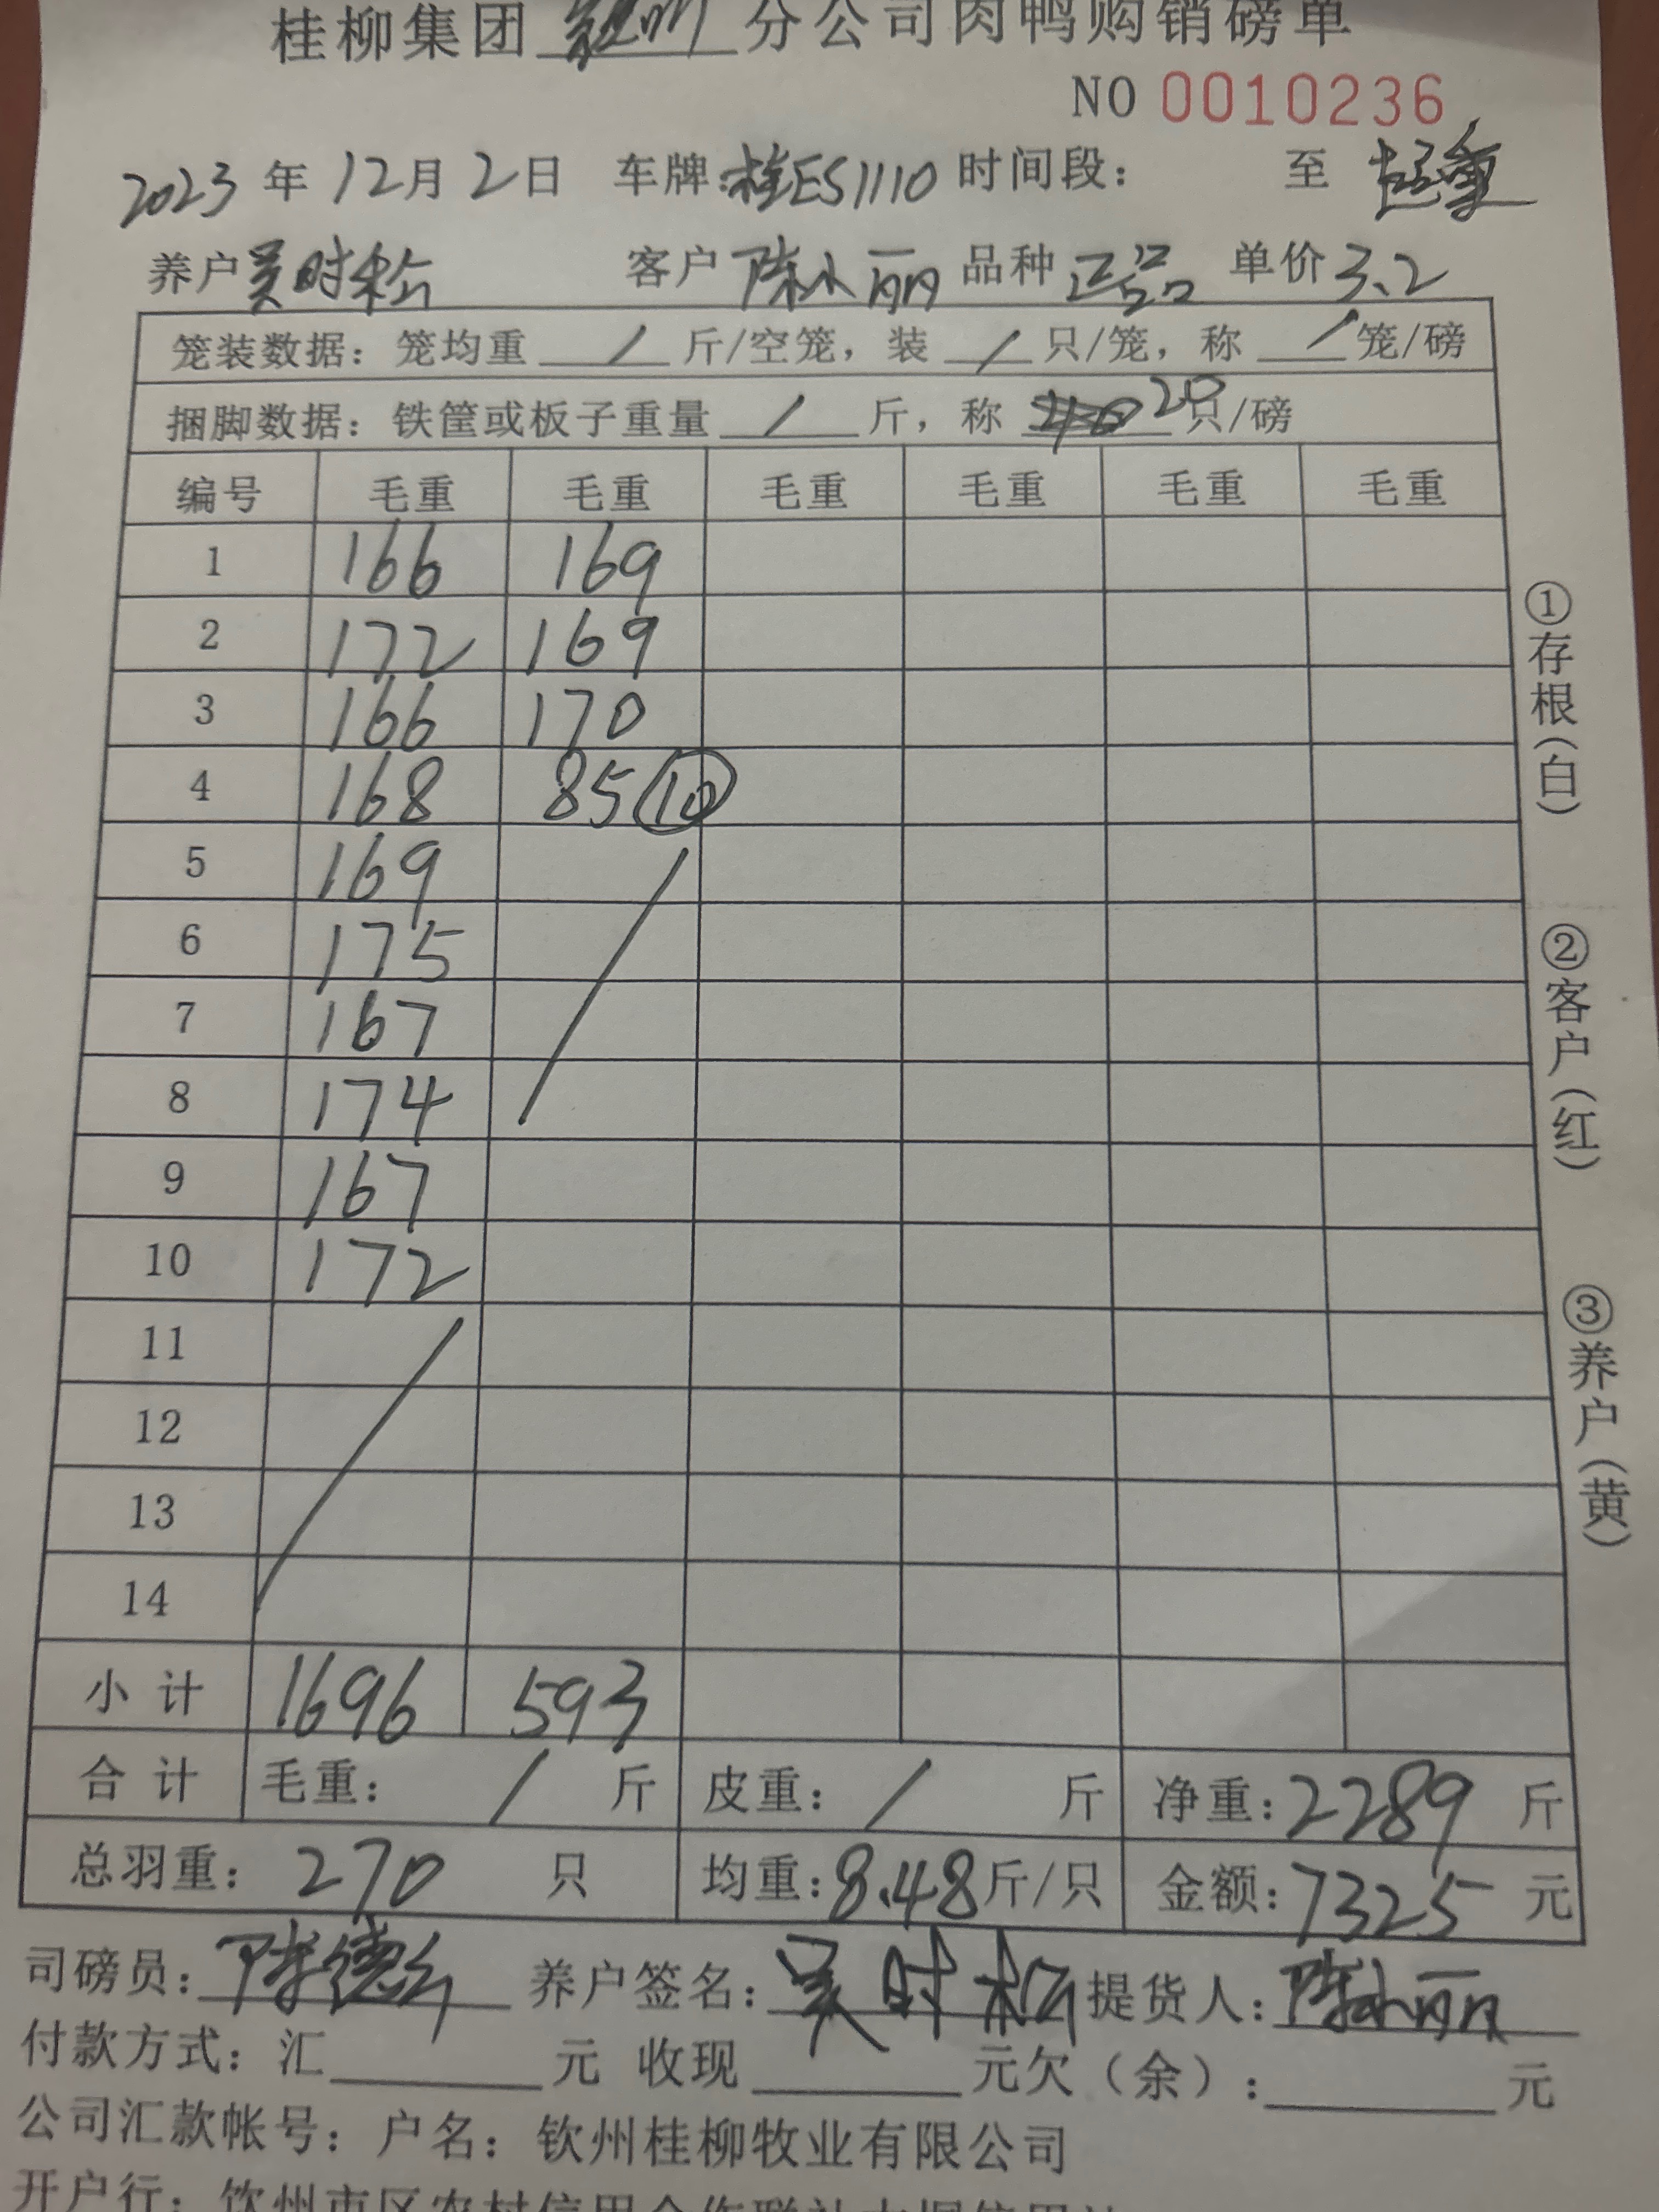 桂柳集团 分公司肉鸭购销磅单
NO 0010236
2023 年 12 月 2 日 车牌:桂ES1110 时间段: 至 超重
养户 吴时松 客户 陈水丽 品种 正品 单价 3.2
笼装数据: 笼均重 / 斤/空笼, 装 / 只/笼, 称 / 笼/磅
捆脚数据: 铁筐或板子重量 / 斤, 称 20 只/磅
编号 毛重 毛重 毛重 毛重 毛重 毛重
1 166 169
2 172 169
3 166 170
4 168 85 ⑩
5 169
6 175
7 167
8 174
9 167
10 172
11
12
13
14
小计 1696 593
合计 毛重: / 斤 皮重: / 斤 净重: 2289 斤
总羽重: 270 只 均重: 8.48 斤/只 金额: 7325 元
①存根(白) ②客户(红) ③养户(黄)
司磅员: 陈德 养户签名: 吴时松 提货人: 陈水丽
付款方式: 汇 元 收现 元欠(余): 元
公司汇款帐号: 户名: 钦州桂柳牧业有限公司
开户行: 钦州市区农村信用合作联社